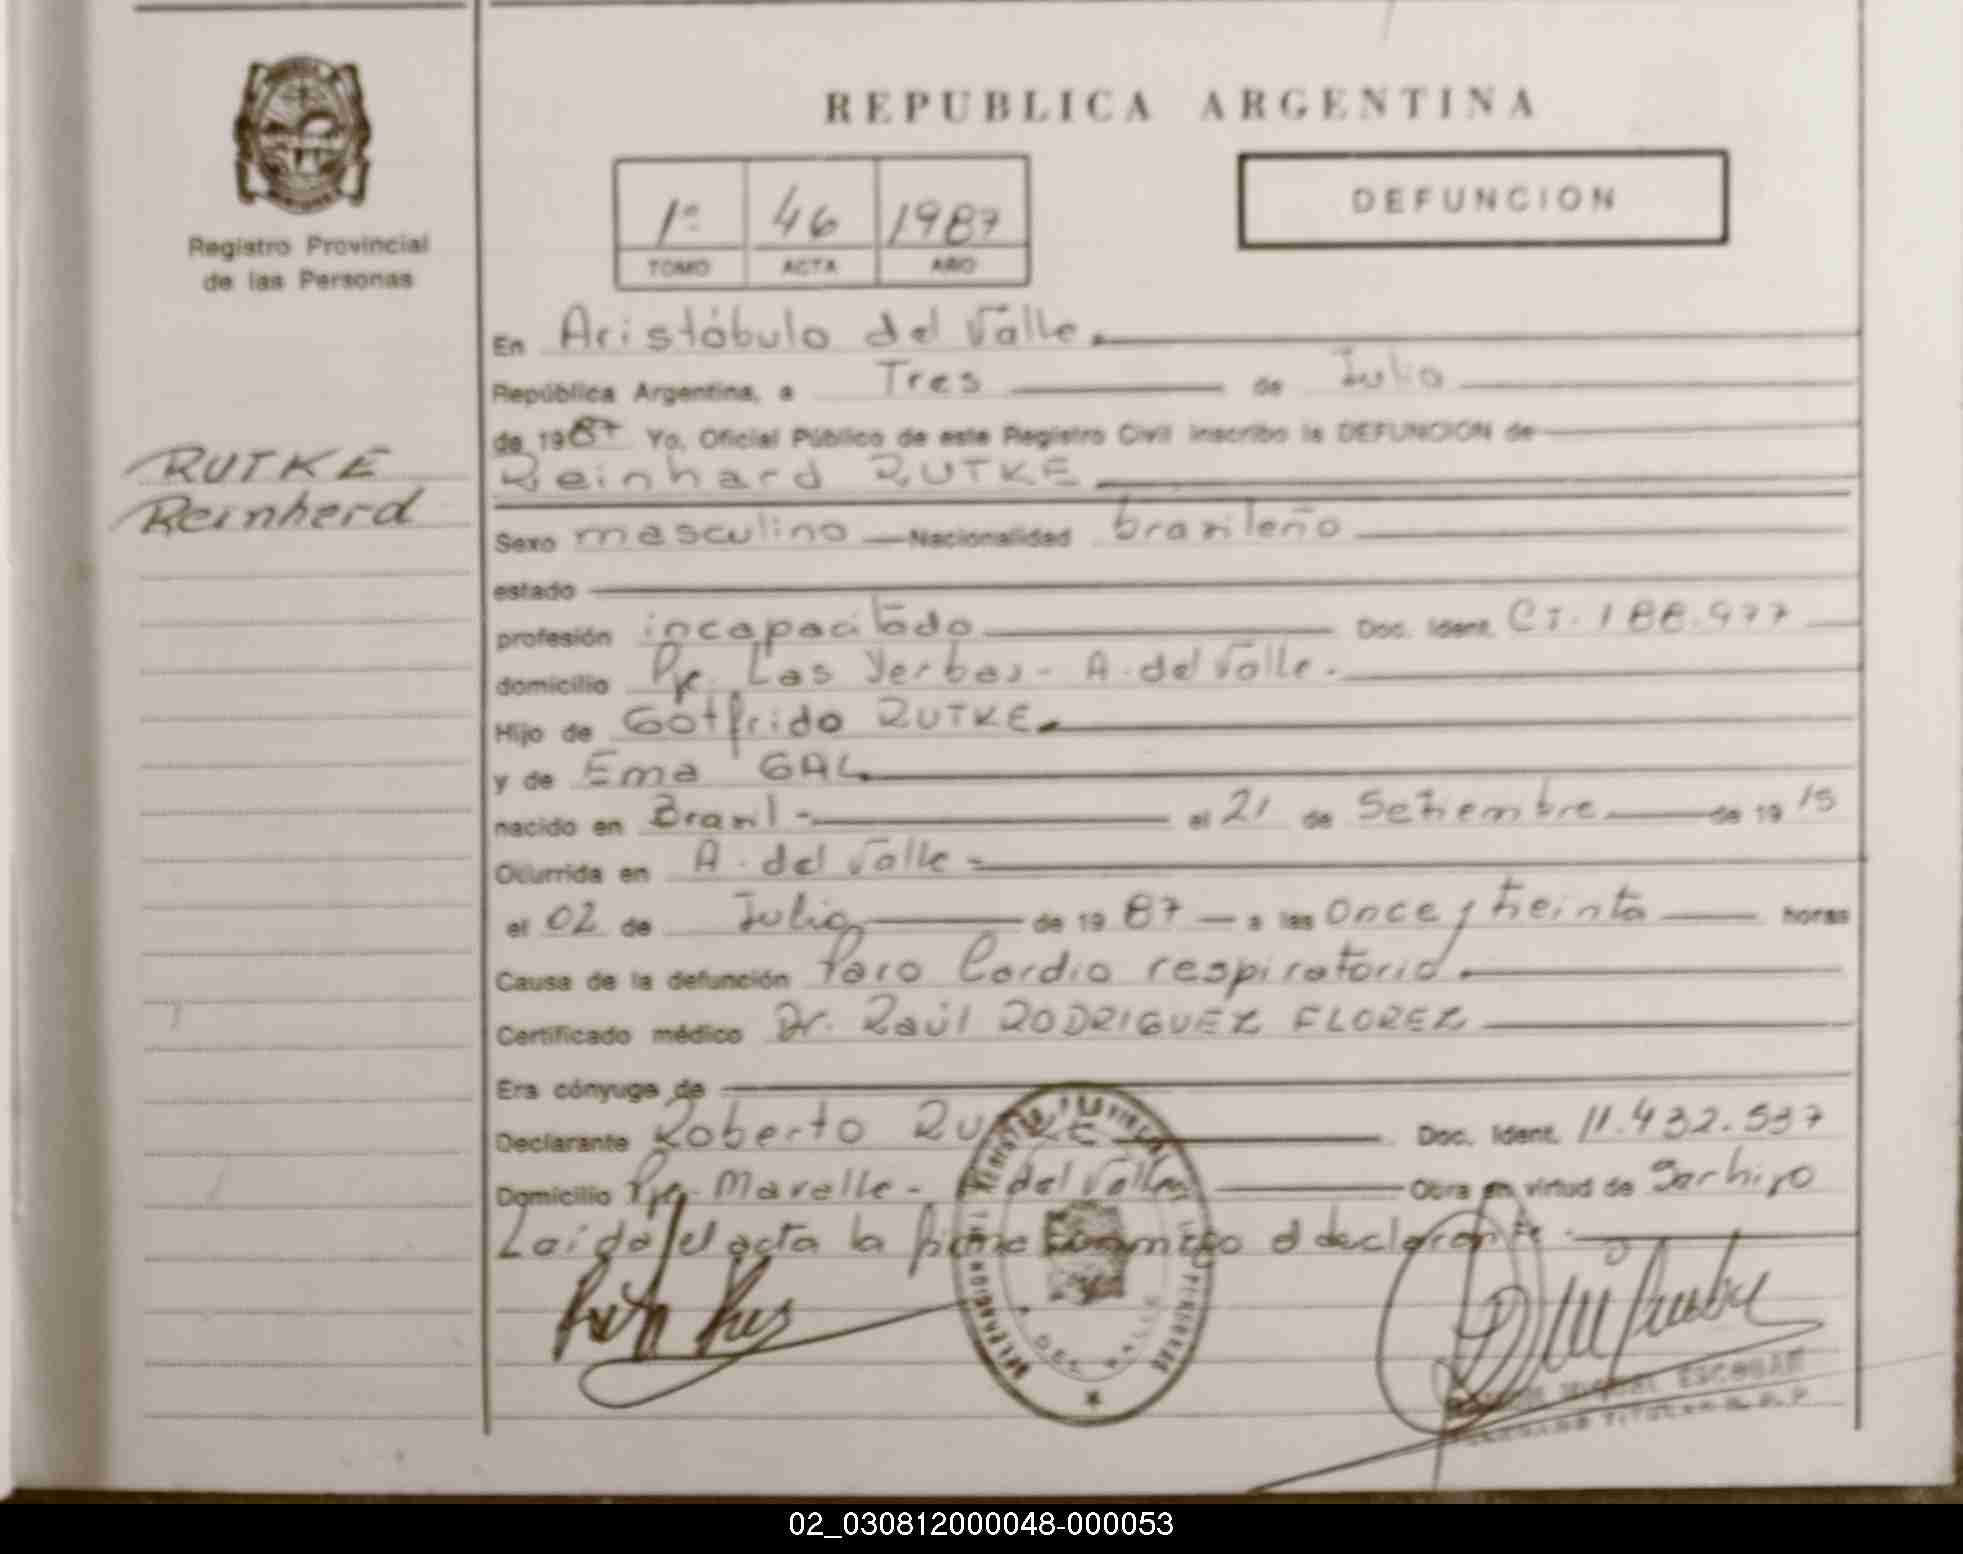 REPUBLICA ARGENTINA
Registro Provincial
de las Personas
1º 46 1987
TOMO ACTA AÑO
DEFUNCION
RUTKE
Reinherd
En Aristóbulo del Valle.
República Argentina, a Tres de Julio
de 1987 Yo, Oficial Público de este Registro Civil inscribo la DEFUNCION de
Reinhard RUTKE
Sexo masculino Nacionalidad brazileño
estado
profesión incapacitado Doc. Ident. CI. 188.977
domicilio Pje. Las Yerbas - A. del Valle.
Hijo de Gotfrido RUTKE.
y de Ema GAL
nacido en Brazil - el 21 de Setiembre de 1915
Ocurrida en A. del Valle -
el 02 de Julio de 1987 a las Once y treinta horas
Causa de la defunción Paro Cardio respiratorio.
Certificado médico Dr. Raúl RODRIGUEZ FLOREZ
Era cónyuge de
Declarante Roberto RUTKE Doc. Ident. 11.432.537
Domicilio Pje. Mavelle - del Valle Obra en virtud de
Leída el acta la firma conmigo el declarante.
DEL VALLE
ESCOBAR
TITULAR R. P.
02_030812000048-000053